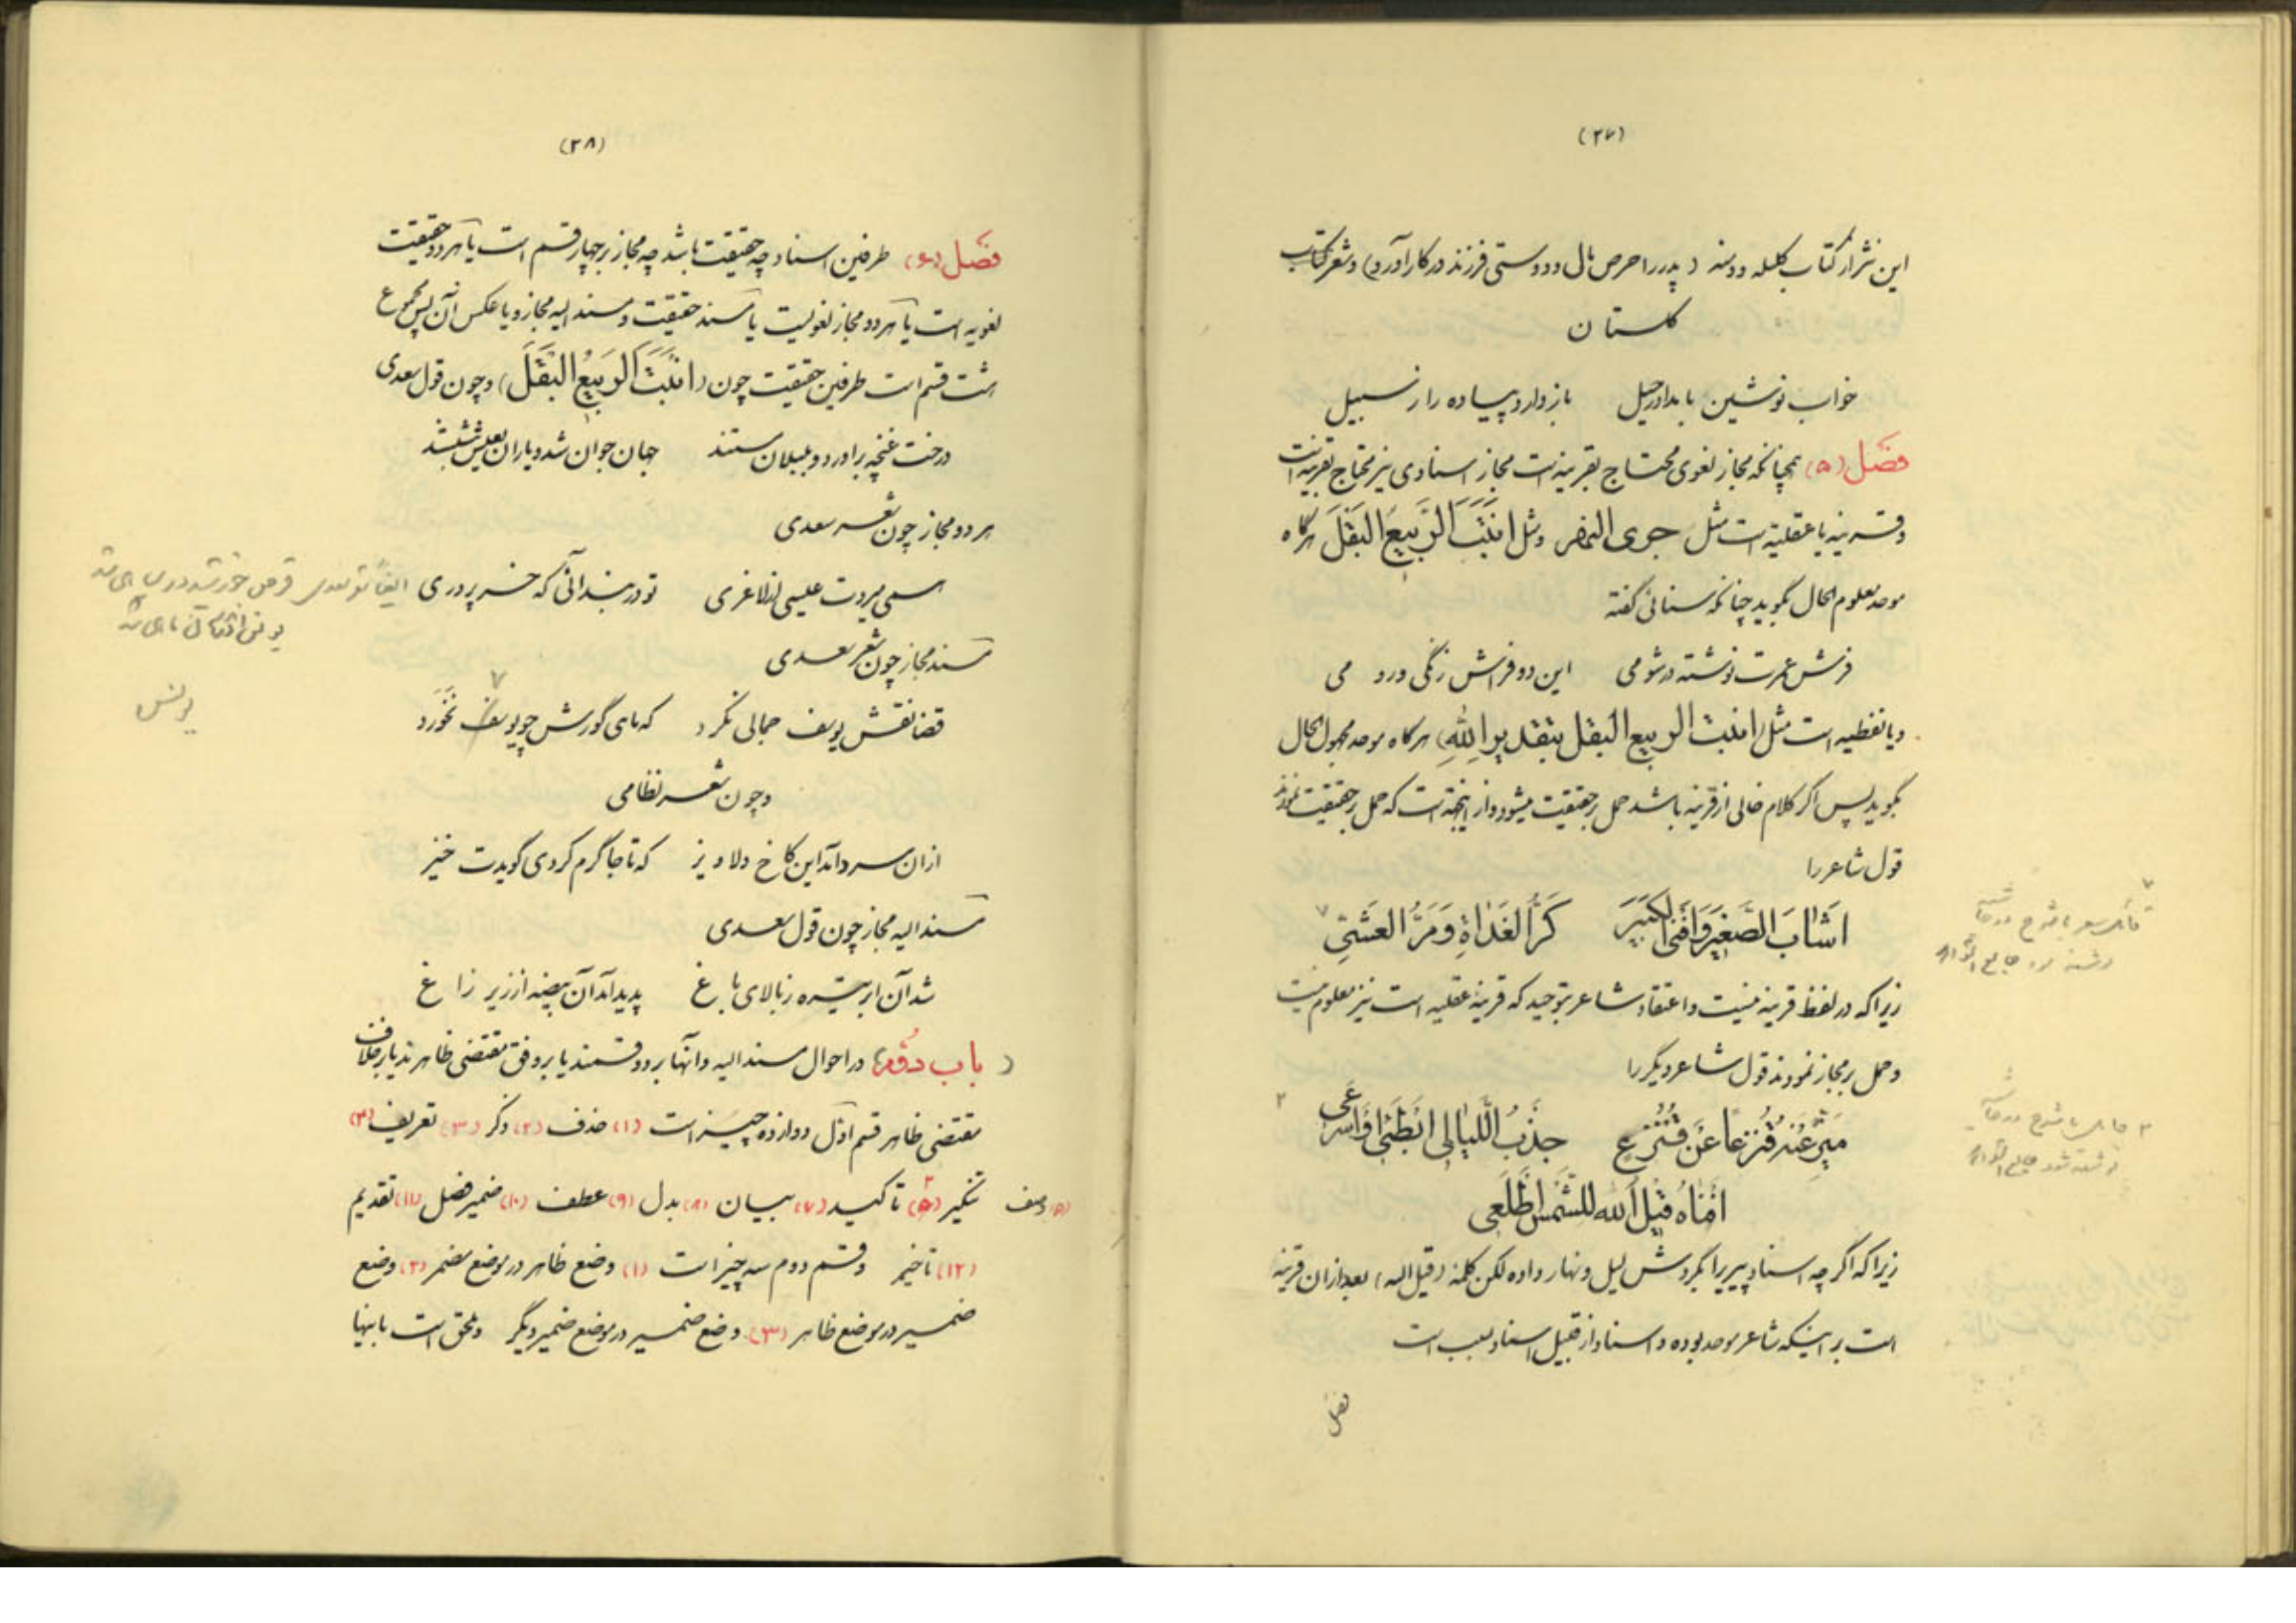 (۲۷)
این نثر از کتاب کلیله و دمنه (پدر را حرص مال و دوستی فرزند در کار آورد) و شعر کتاب
گلستان
خواب نوشین بامداد رحیل بازدارد پیاده را ز سبیل
فصل (۵) همچنانکه مجاز لغوی محتاج بقرینه است مجاز اسنادی نیز محتاج بقرینه است
و قرینه یا عقلیه است مثل جری النهر و مثل اَنْبَتَ الرَّبیعُ البَقْلَ هرگاه
موحد معلوم الحال بگوید چنانکه سنائی گفته
فرش عمرت نوشته در شومی این دو فراش زنگی و رومی
و یا لفظیه است مثل (انبت الربیع البقل بتقدیر اللهِ) هرگاه موحد مجهول الحال
بگوید پس اگر کلام خالی از قرینه باشد حمل بر حقیقت میشود و از اینجهة است که حمل بر حقیقت نمودند
قول شاعر را
اَشابَ الصَّغیرَ وَاَفْنَی الکَبیرَ کَرُّ الغَداةِ وَمَرُّ العَشِیِّ ۷
زیرا که در لفظ قرینه نیست و اعتقاد شاعر بتوحید که قرینه عقلیه است نیز معلوم نیست
و حمل بر مجاز نمودند قول شاعر دیگر را
مَیَّزَ عَنْهُ قُنْزُعاً عَنْ قُنْزُعِ جَذْبُ اللَّیالی اَبْطِئی وَاَسْرِعی ۲
اَفْناهُ قیلُ اللهِ للشَّمْسِ اطْلُعی
زیرا که اگرچه اسناد پیری را بگردش لیل و نهار داده لکن کلمه (قیل الله) بعد از آن قرینه
است بر اینکه شاعر موحد بوده و اسناد از قبیل اسناد بسبب است
فصل
۷
با شرح در حاشیه
۲
با شرح در حاشیه
نوشته شد
(۲۸)
فصل (۶) طرفین اسناد چه حقیقت باشد چه مجاز بر چهار قسم است یا هر دو حقیقت
لغویه است یا هر دو مجاز لغویست یا مسند حقیقت و مسند الیه مجاز و یا عکس آن پس مجموع
هشت قسم است طرفین حقیقت چون (اَنْبَتَ الرَبیعُ البَقْلَ) و چون قول سعدی
درخت غنچه برآورد و بلبلان مستند جهان جوان شد و یاران بعیش بنشستند
هر دو مجاز چون شعر سعدی
همی میردت عیسی از لاغری تو در بند آنی که خر پروری
ایضاً قرص خورشید در سیاهی شد
یونس اندر دهان ماهی شد
مسند مجاز چون شعر سعدی
قضا نقش یوسف جمالی نکرد که ماهی گورش چو یوسف نخورد
۷
یونس
و چون شعر نظامی
از ان سرد آمد این کاخ دلاویز که تا جا گرم کردی گویدت خیز
مسند الیه مجاز چون قول سعدی
شد آن ابر تیره ز بالای باغ پدید آمد آن بیضه از زیر زاغ
( باب دوُّم ) در احوال مسند الیه و آنها بر دو قسمند یا بر وفق مقتضی ظاهرند یا بر خلاف
مقتضی ظاهر قسم اوّل دوازده چیز است (۱) حذف (۲) ذکر (۳) تعریف (۴)
تنکیر (۵) وصف (۶) تاکید (۷) بیان (۸) بدل (۹) عطف (۱۰) ضمیر فصل (۱۱) تقدیم
(۱۲) تاخیر و قسم دوم سه چیز است (۱) وضع ظاهر در موضع مضمر (۲) وضع
ضمیر در موضع ظاهر (۳) وضع ضمیر در موضع ضمیر دیگر و ملحق است باینها